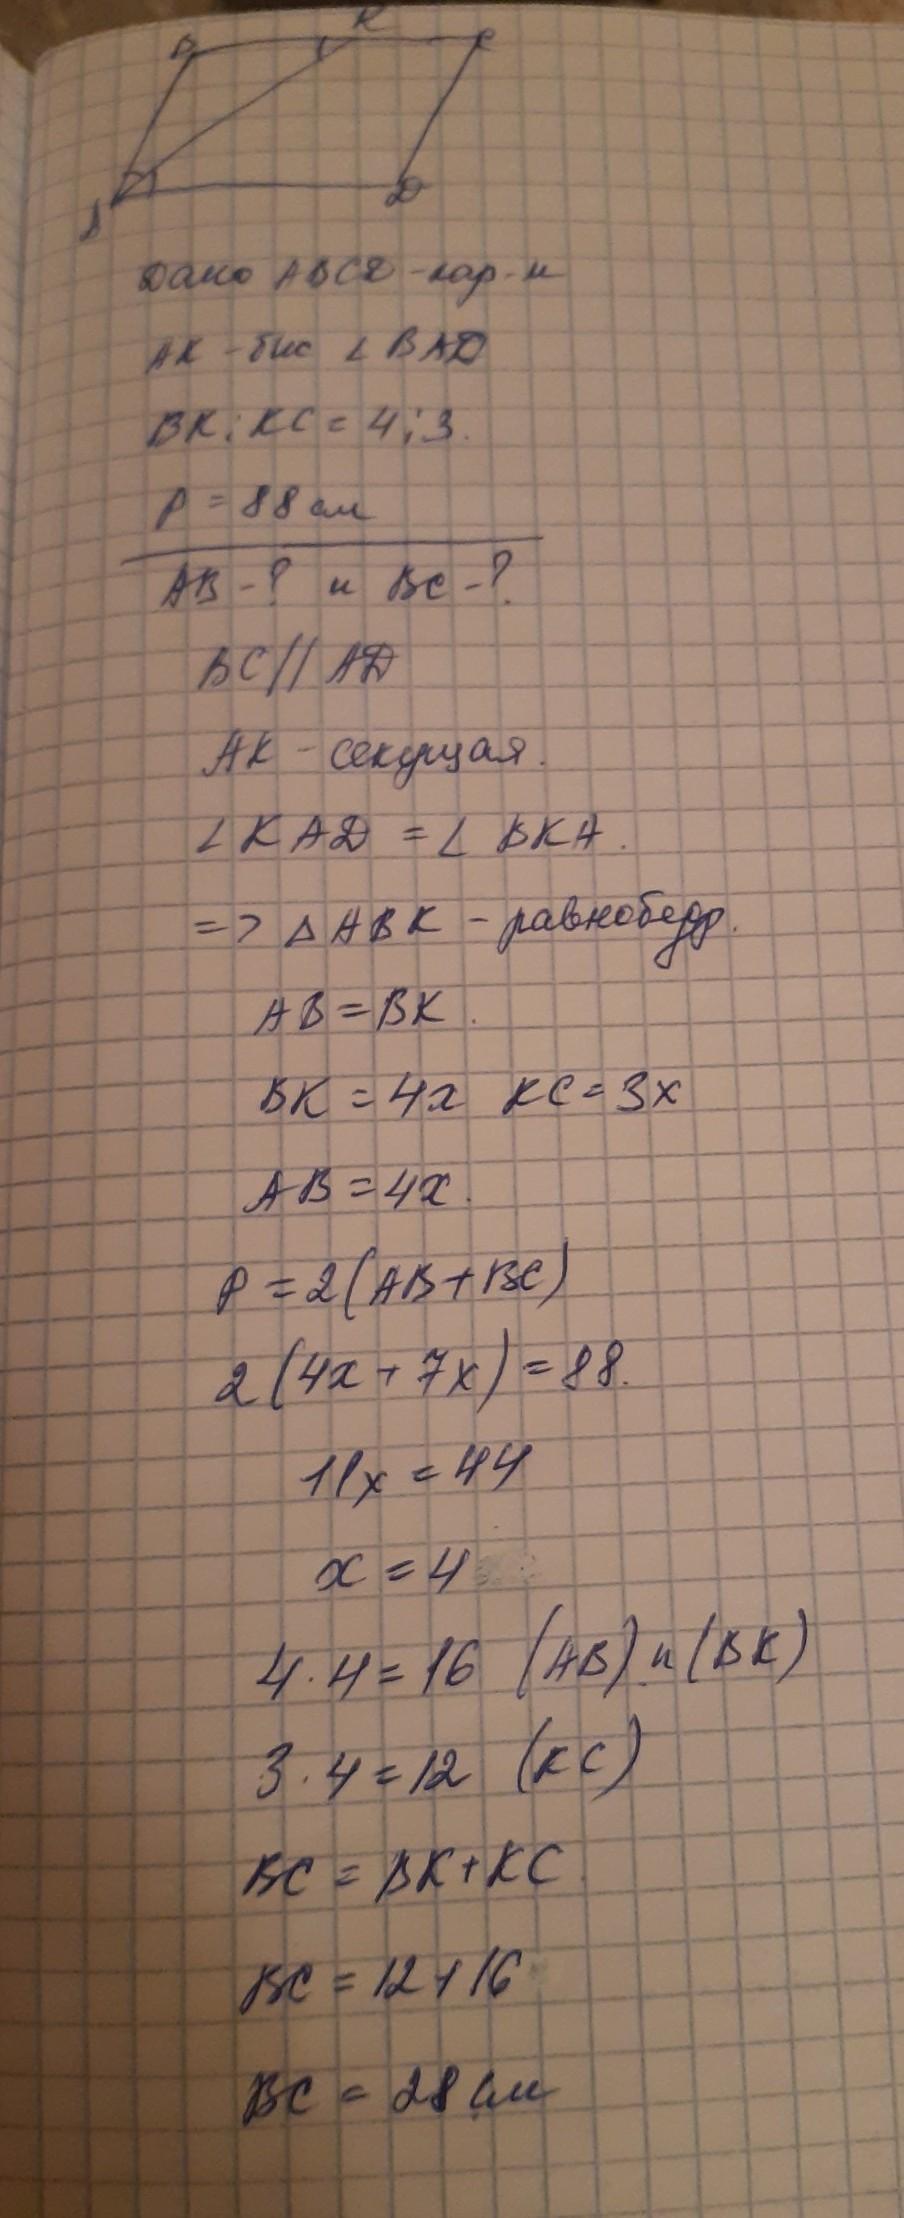 B K C
A D
Дано ABCD - пар-м
AK - бис ∠ BAD
BK : KC = 4 : 3.
P = 88 см
AB - ? и BC - ?
BC // AD
AK - секущая.
∠ KAD = ∠ BKA.
=> △ ABK - равнобедр.
AB = BK.
BK = 4x KC = 3x
AB = 4x.
P = 2(AB + BC)
2(4x + 7x) = 88.
11x = 44
x = 4
4 · 4 = 16 (AB) и (BK)
3 · 4 = 12 (KC)
BC = BK + KC
BC = 12 + 16
BC = 28 см